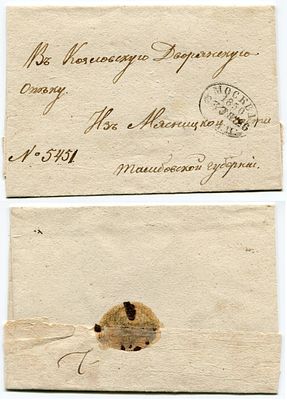 Въ Козловскую Дворянскую
Опѣку.
МОСКВА
Изъ Мясницкой
№ 5451
Тамбовской губерніи.